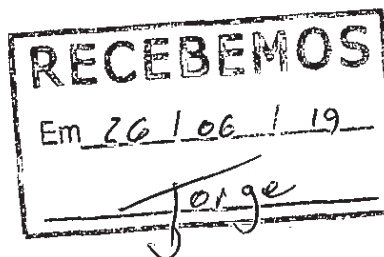 RECEBEMOS
Em 26 / 06 / 19
Jorge